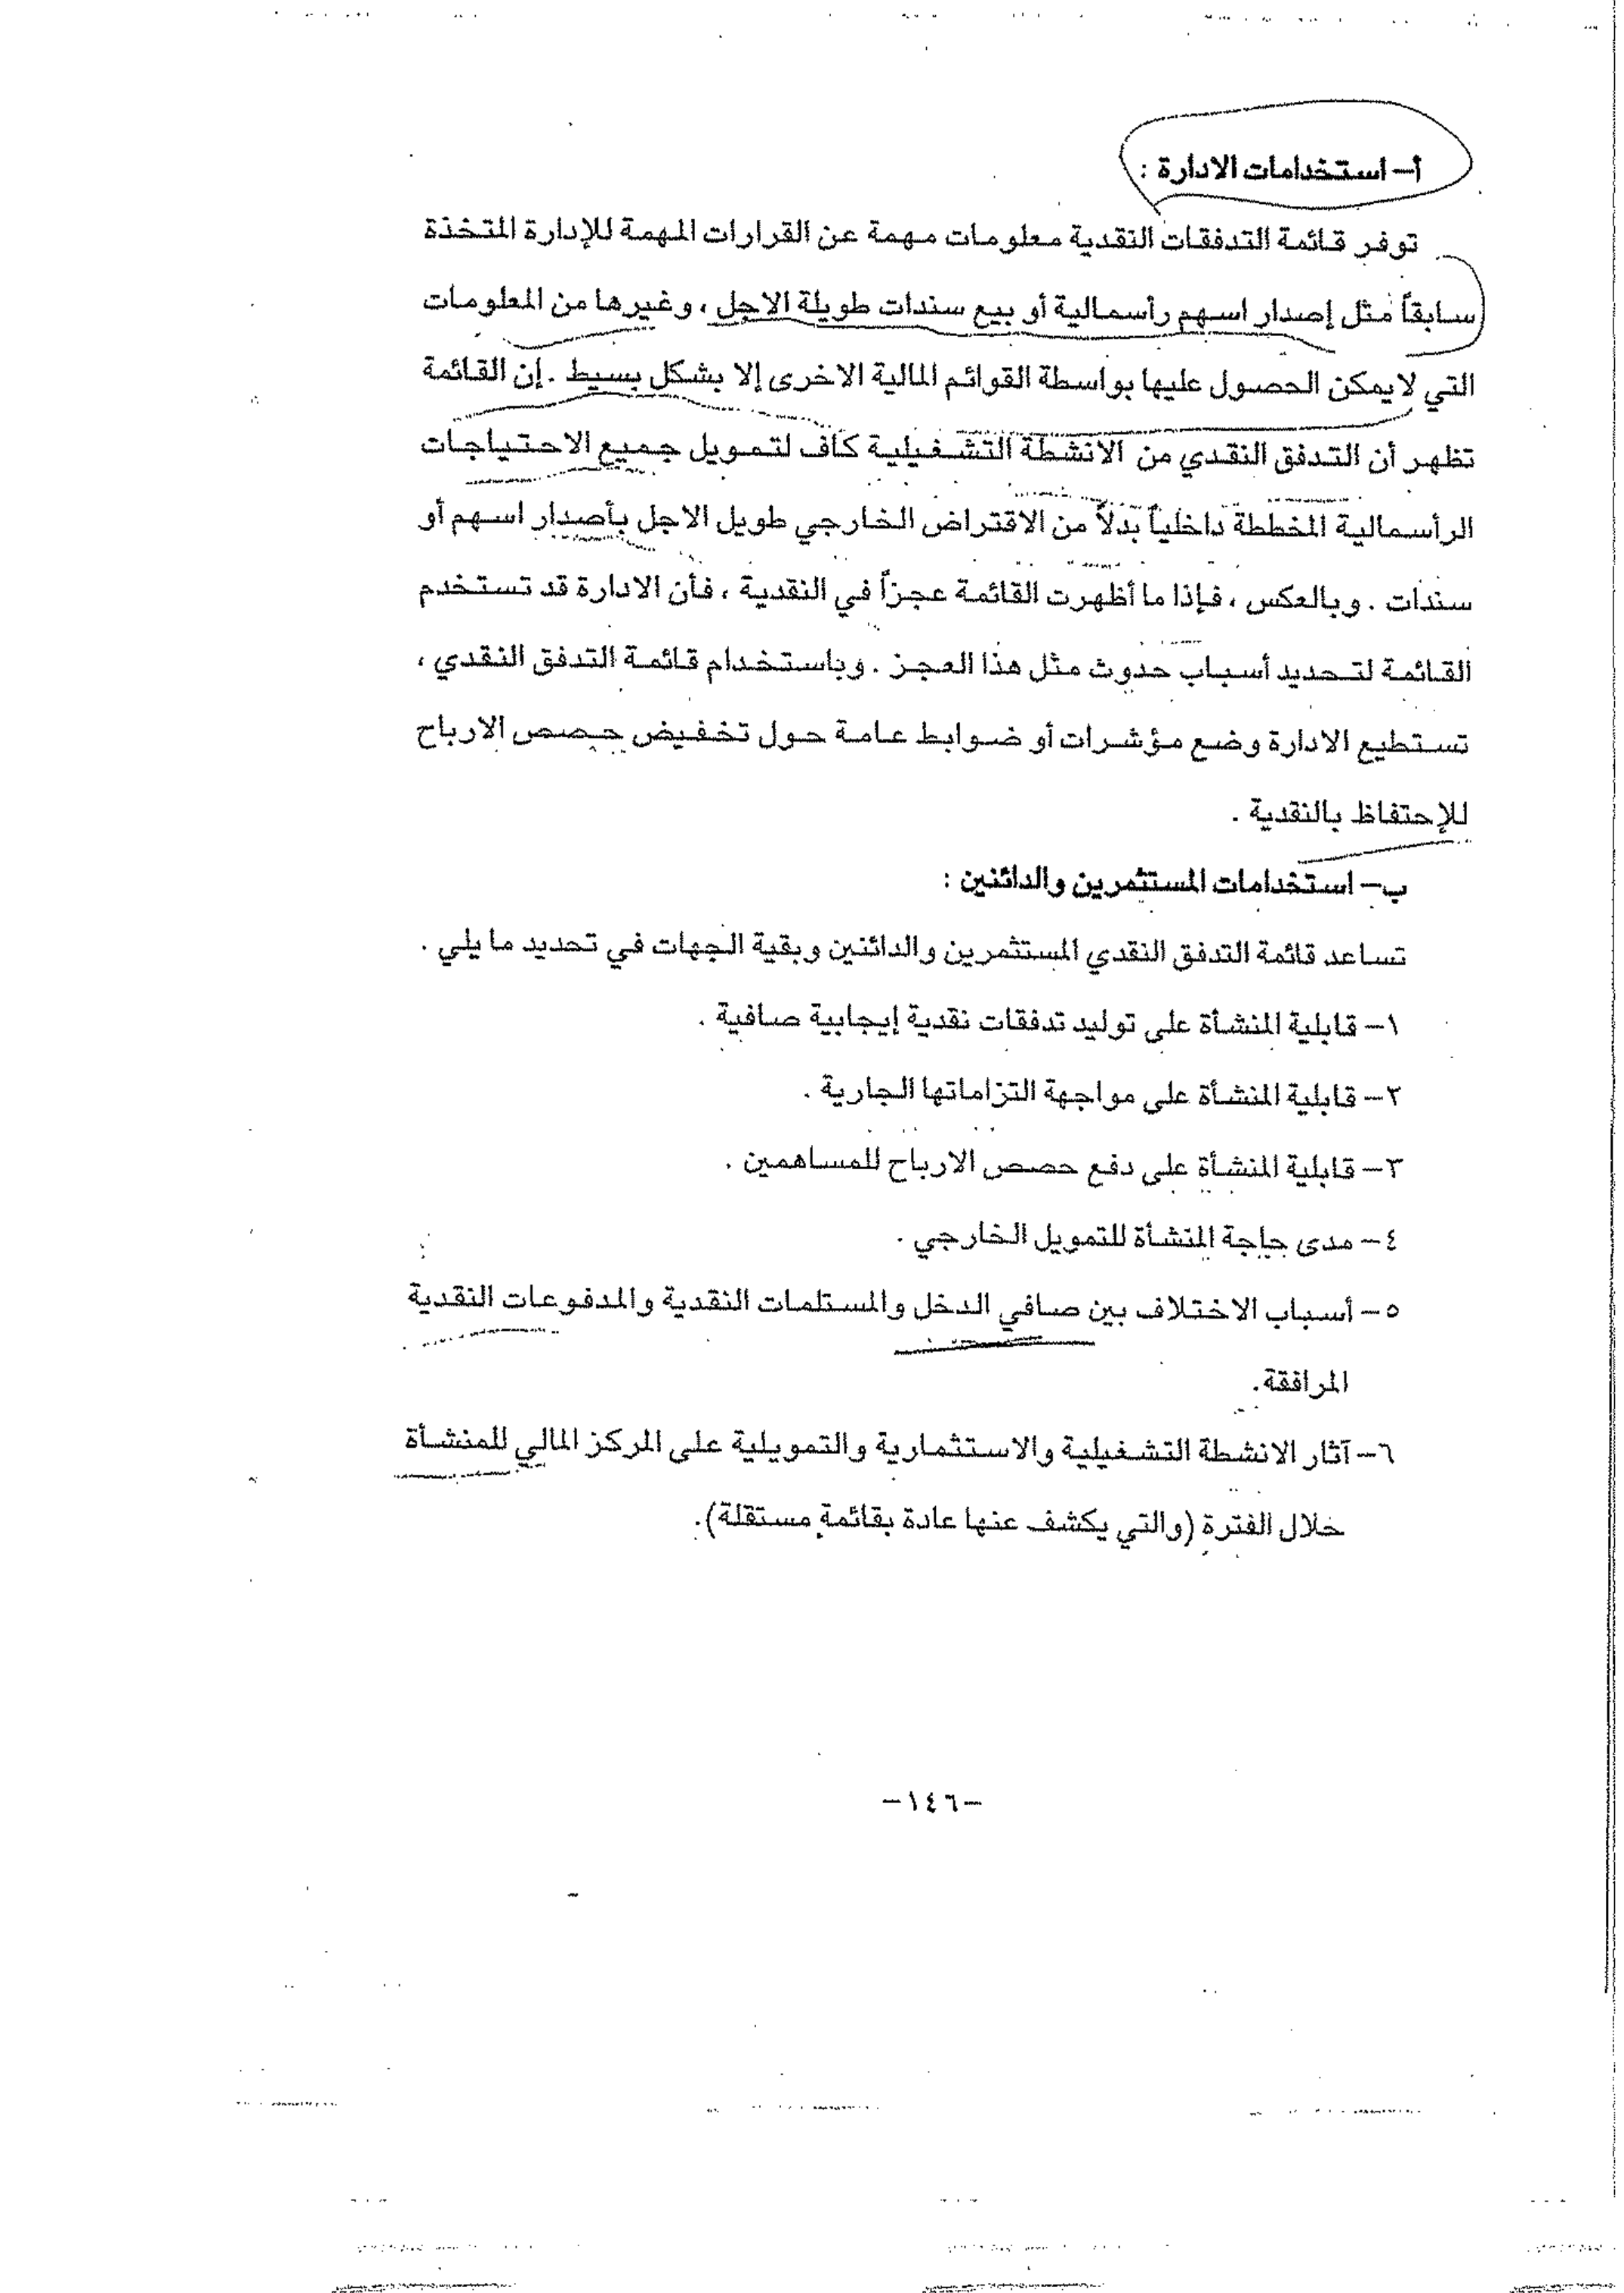 أ- استخدامات الادارة :
توفر قائمة التدفقات النقدية معلومات مهمة عن القرارات المهمة للإدارة المتخذة
سابقاً مثل إصدار اسهم رأسمالية أو بيع سندات طويلة الاجل ، وغيرها من المعلومات
التي لايمكن الحصول عليها بواسطة القوائم المالية الاخرى إلا بشكل بسيط . إن القائمة
تظهر أن التدفق النقدي من الانشطة التشغيلية كاف لتمويل جميع الاحتياجات
الرأسمالية المخططة داخلياً بدلاً من الاقتراض الخارجي طويل الاجل بأصدار اسهم أو
سندات . وبالعكس ، فإذا ما أظهرت القائمة عجزاً في النقدية ، فأن الادارة قد تستخدم
القائمة لتحديد أسباب حدوث مثل هذا العجز . وباستخدام قائمة التدفق النقدي ،
تستطيع الادارة وضع مؤشرات أو ضوابط عامة حول تخفيض حصص الارباح
للإحتفاظ بالنقدية .
ب- استخدامات المستثمرين والدائنين :
تساعد قائمة التدفق النقدي المستثمرين والدائنين وبقية الجهات في تحديد مايلي .
١- قابلية المنشأة على توليد تدفقات نقدية إيجابية صافية .
٢- قابلية المنشأة على مواجهة التزاماتها الجارية .
٣- قابلية المنشأة على دفع حصص الارباح للمساهمين .
٤- مدى حاجة المنشأة للتمويل الخارجي .
٥- أسباب الاختلاف بين صافي الدخل والمستلمات النقدية والمدفوعات النقدية
المرافقة.
٦- آثار الانشطة التشغيلية والاستثمارية والتمويلية على المركز المالي للمنشأة
خلال الفترة (والتي يكشف عنها عادة بقائمة مستقلة).
-١٤٦-